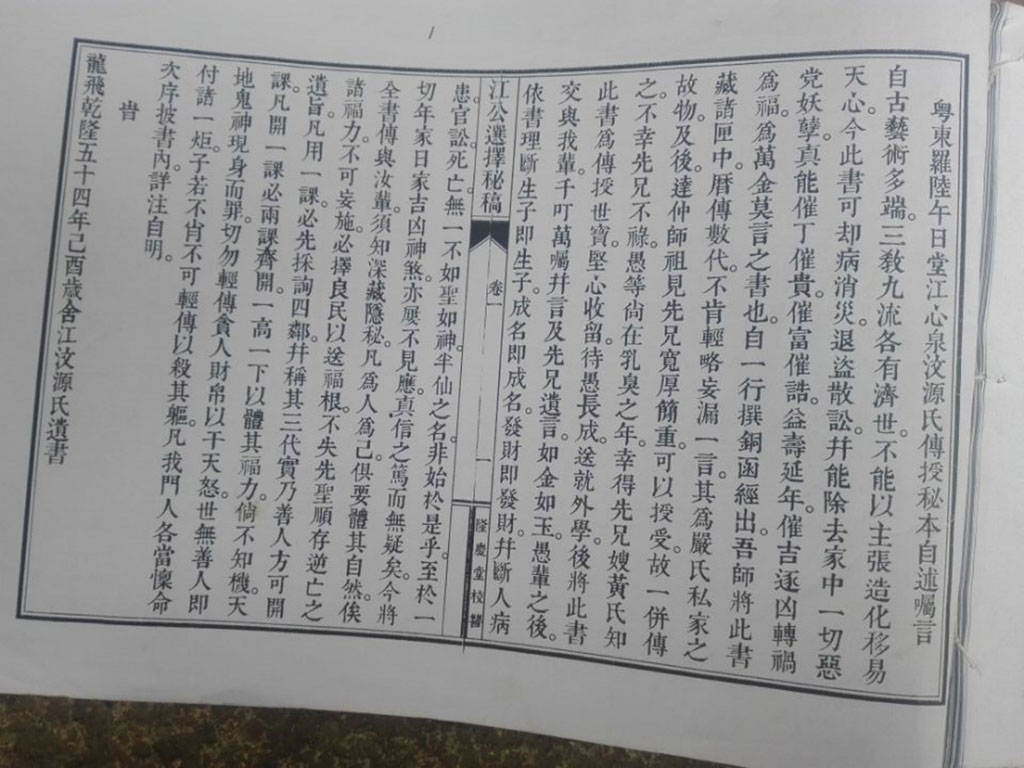 粵東羅陸午日堂江心泉汶源氏傳授秘本自述囑言
自古藝術多端。三敎九流各有濟世。不能以主張造化移易
天心。今此書可却病消災。退盜散訟。幷能除去家中一切惡
党妖孽。真能催丁催貴。催富催誥。益壽延年。催吉逐凶轉禍
爲福。爲萬金莫言之書也。自一行撰銅函經出。吾師將此書
藏諸匣中。曆傳數代。不肯輕略妄漏一言。其爲嚴氏私家之
故物。及後。達仲師祖見先兄寬厚簡重。可以授受。故一併傳
之。不幸先兄不祿。愚等尙在乳臭之年。幸得先兄嫂黃氏知
此書爲傳授世寶。堅心收留。待愚長成。送就外學。後將此書
交與我輩。千叮萬囑。幷言及先兄遺言。如金如玉。愚輩之後。
依書理斷。生子即生子。成名即成名。發財即發財。幷斷人病
江公選擇秘稿
卷一
一
隆慶堂校讐
患。官訟死亡。無一不如聖如神。半仙之名。非始於是乎。至於一
切年家日家吉凶神煞。亦屢不見應。真信之篤而無疑矣。今將
全書傳與汝輩。須知深藏隱秘。凡爲人爲己。俱要體其自然。俟
諸福力。不可妄施。必擇良民以送福根。不失先聖順存逆亡之
遺旨。凡用一課。必先採詢四鄰。幷稱其三代實乃善人。方可開
課。凡開一課。必兩課齊開。一高一下。以體其福力。倘不知機。天
地鬼神現身而罪。切勿輕傳。貪人財帛以干天怒。世無善人。即
付諸一炬。子若不肖。不可輕傳以殺其軀。凡我門人各當懷命
次序披書內。詳注自明。
旹
龍飛乾隆五十四年己酉歲舍江汶源氏遺書